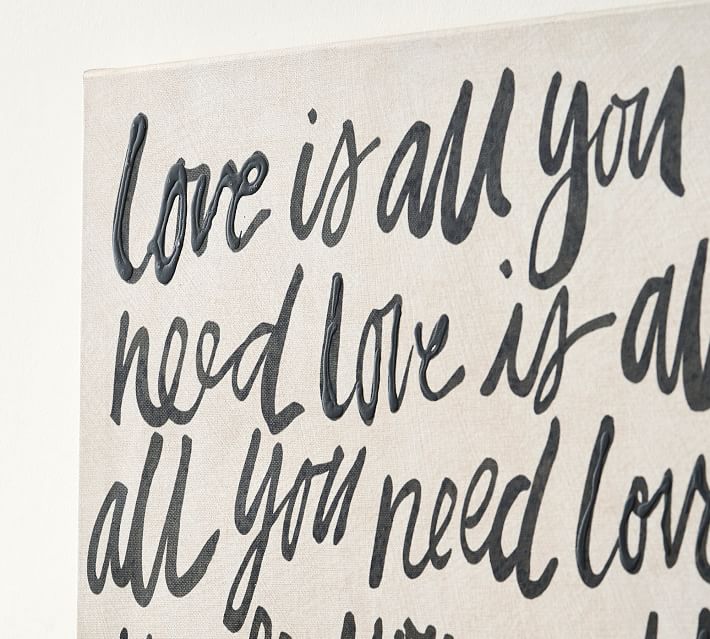 love is all you
need love is all
all you need love